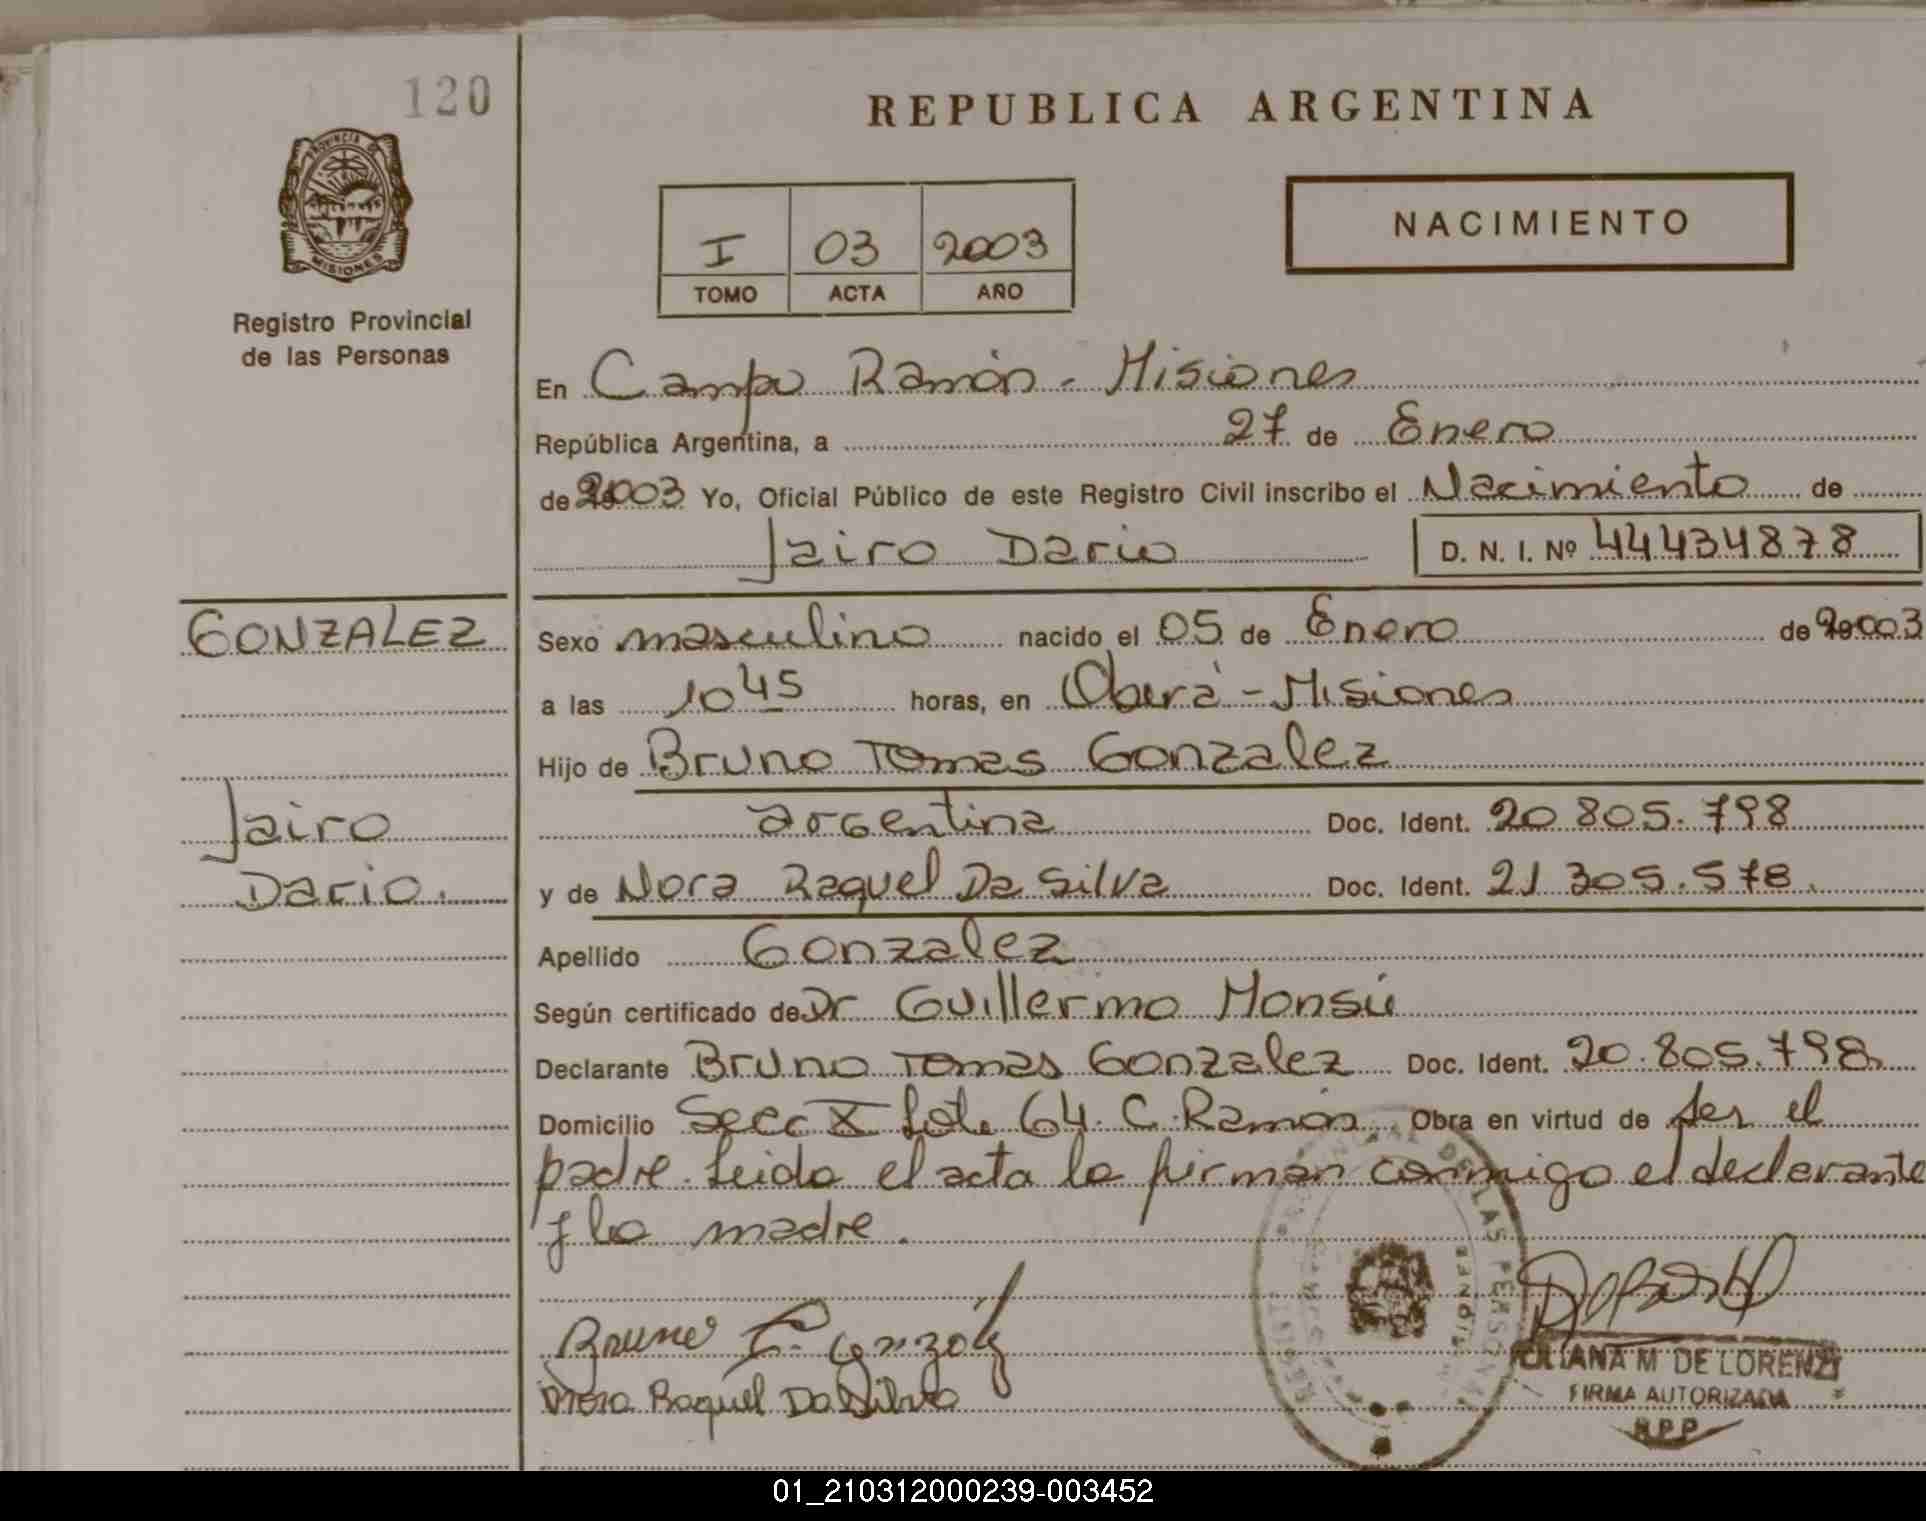 120
REPUBLICA ARGENTINA
PROVINCIA DE
MISIONES
Registro Provincial
de las Personas
I 03 2003
TOMO ACTA AÑO
NACIMIENTO
En Campo Ramón - Misiones
República Argentina, a 27 de Enero
de 2003 Yo, Oficial Público de este Registro Civil inscribo el Nacimiento de
Jairo Dario D. N. I. Nº 44434878
GONZALEZ
Jairo
Dario.
Sexo masculino nacido el 05 de Enero de 2003
a las 10 45 horas, en Oberá - Misiones
Hijo de Bruno Tomas Gonzalez
argentina Doc. Ident. 20 805. 798
y de Nora Raquel Da Silva Doc. Ident. 21 305. 578.
Apellido Gonzalez
Según certificado de Dr Guillermo Monsú
Declarante Bruno Tomas Gonzalez Doc. Ident. 20. 805. 798.
Domicilio Secc X Lote 64. C. Ramón Obra en virtud de ser el
padre. Leida el acta la firman conmigo el declarante
y la madre.
Bruno T. Gonzalez
Nora Raquel Da Silva
DE LAS PERSONAS
M DE LORENZI
FIRMA AUTORIZADA
R P P
01_210312000239-003452